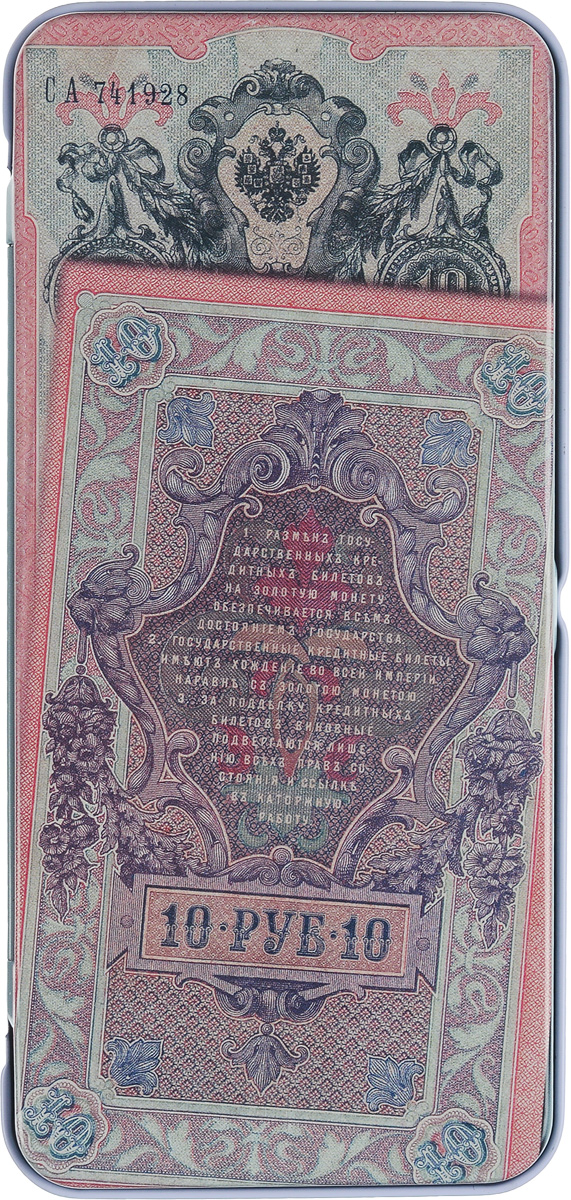 СА 741928
10
10
10
1. РАЗМѢНЪ ГОСУ-
ДАРСТВЕННЫХЪ КРЕ-
ДИТНЫХЪ БИЛЕТОВЪ
НА ЗОЛОТУЮ МОНЕТУ
ОБЕЗПЕЧИВАЕТСЯ ВСѢМЪ
ДОСТОЯНІЕМЪ ГОСУДАРСТВА.
2. ГОСУДАРСТВЕННЫЕ КРЕДИТНЫЕ БИЛЕТЫ
ИМѢЮТЪ ХОЖДЕНІЕ ВО ВСЕЙ ИМПЕРІИ
НАРАВНѢ СЪ ЗОЛОТОЮ МОНЕТОЮ
3. ЗА ПОДДѢЛКУ КРЕДИТНЫХЪ
БИЛЕТОВЪ ВИНОВНЫЕ
ПОДВЕРГАЮТСЯ ЛИШЕ-
НІЮ ВСѢХЪ ПРАВЪ СО-
СТОЯНІЯ И ССЫЛКѢ
ВЪ КАТОРЖНУЮ
РАБОТУ
10·РУБ·10
10
10